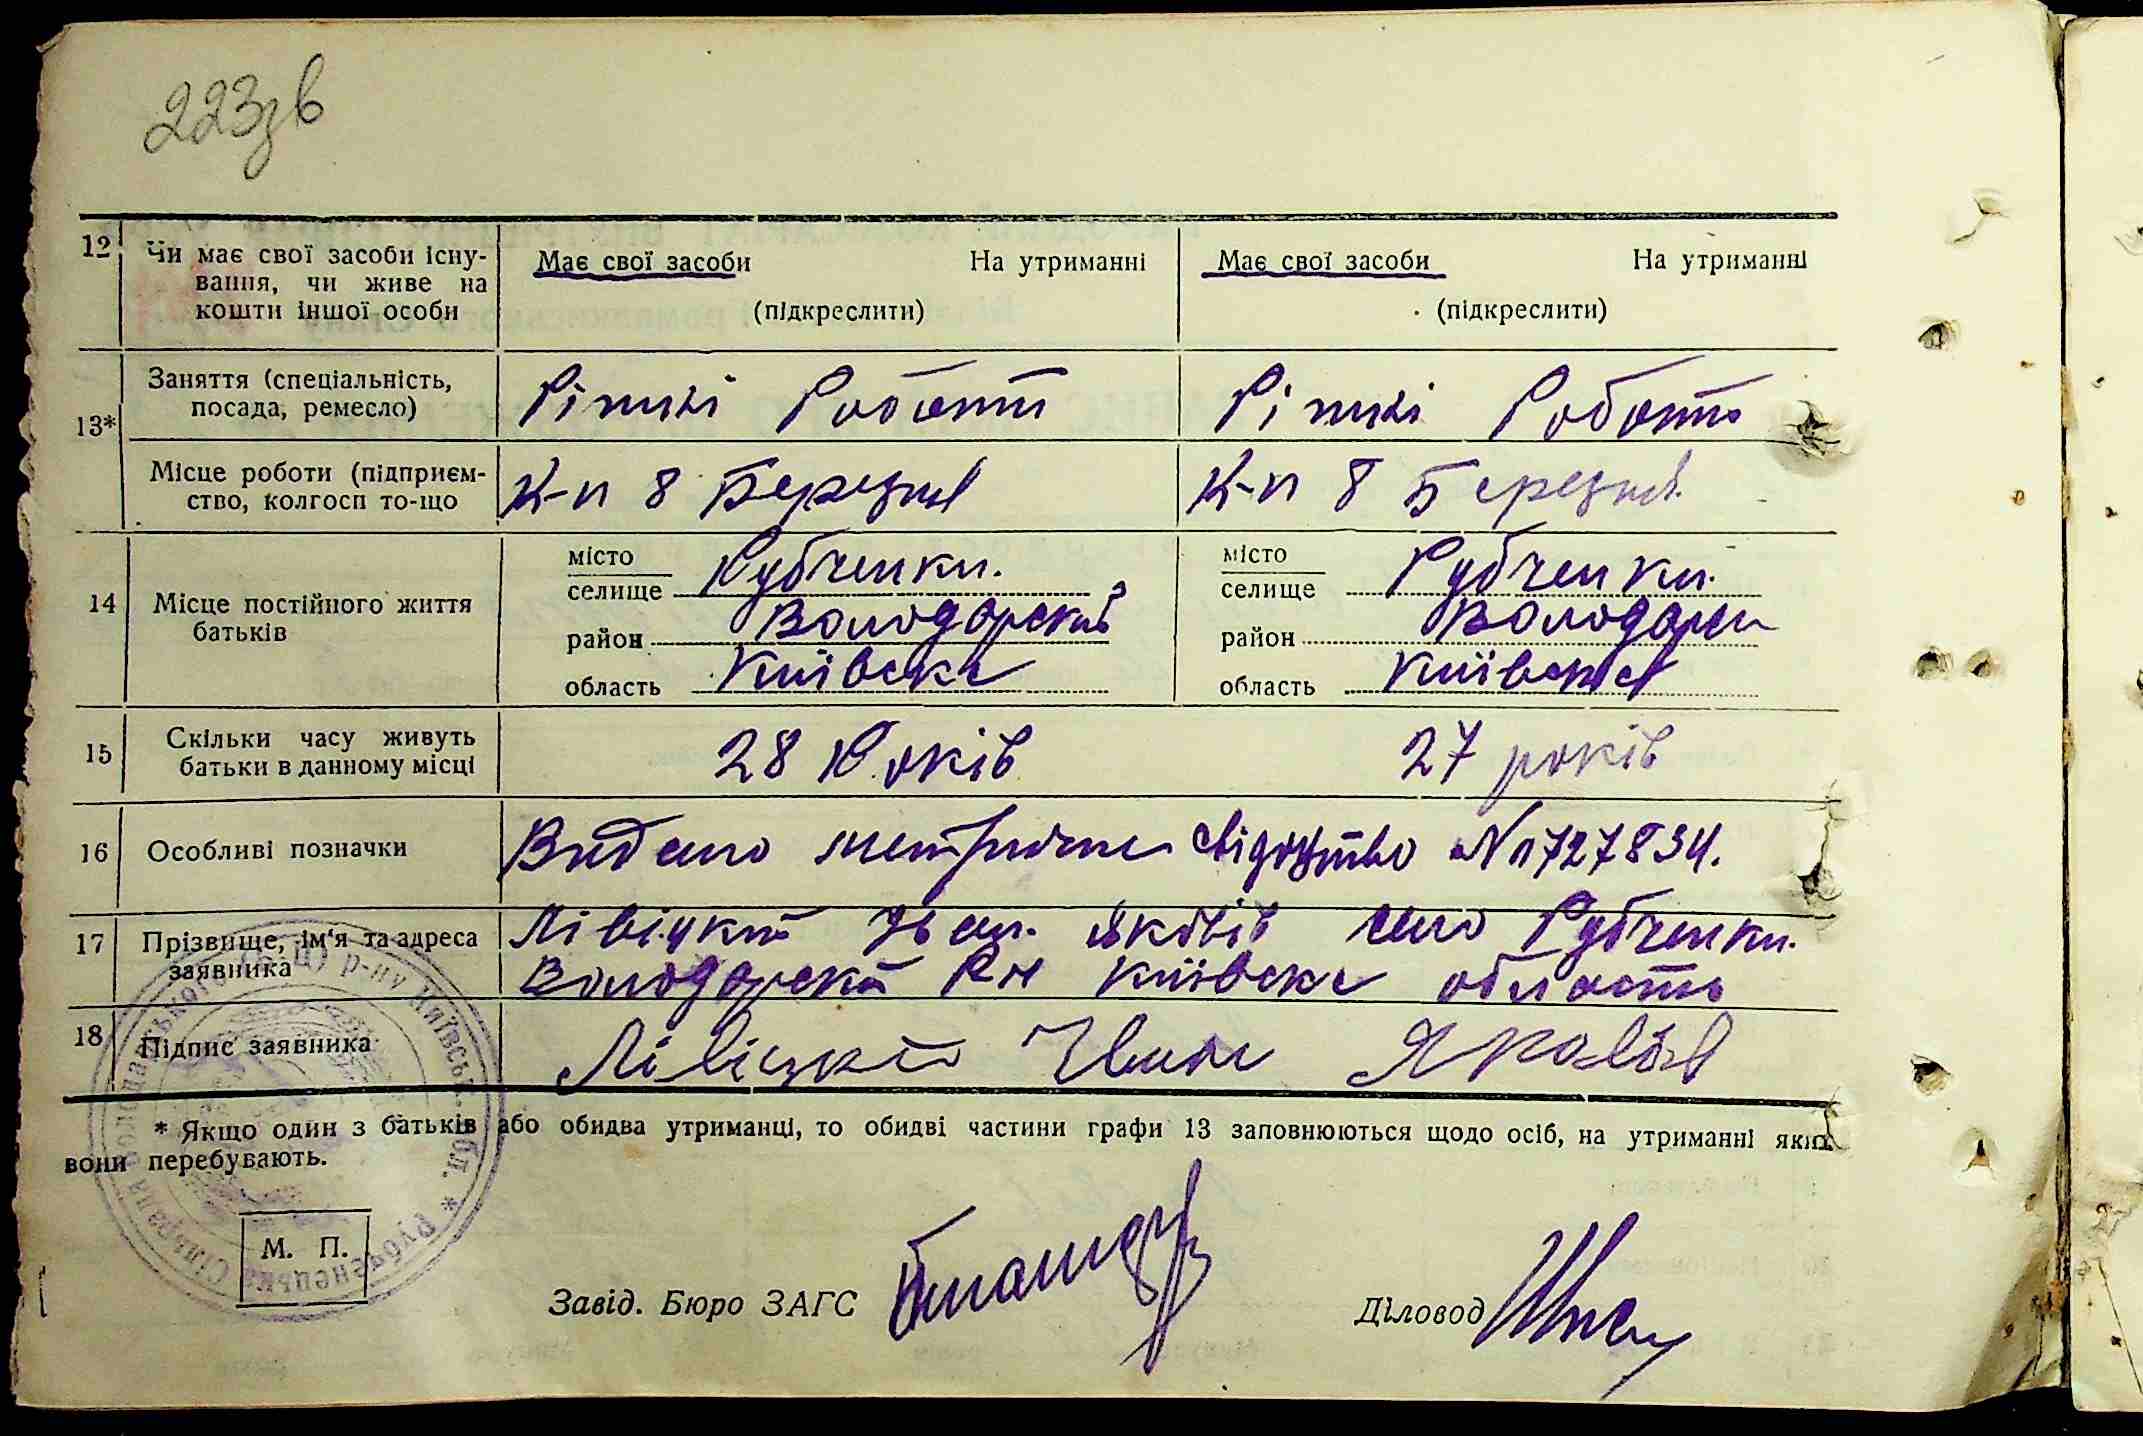 223зв
12 Чи має свої засоби існу-
вання, чи живе на
кошти іншої особи
Має свої засоби На утриманні
(підкреслити)
Має свої засоби На утриманні
(підкреслити)
13* Заняття (спеціальність,
посада, ремесло)
Ріжні Роботи
Ріжні Роботи
Місце роботи (підприєм-
ство, колгосп то-що
К-п 8 Березня
К-п 8 Березня
14 Місце постійного життя
батьків
місто
селище Рубченки.
район Володарский
область Київська
місто
селище Рубченки.
район Володарск
область Київська
15 Скільки часу живуть
батьки в данному місці
28 Років
27 років
16 Особливі позначки
Видано метричне свідоцтво № 1727834.
17 Прізвище, ім'я та адреса
заявника
Лівіцкий Іван Яковів село Рубченки.
Володарский Рн Київська область
18 Підпис заявника
Лівіцкий Іван Яковів
* Якщо один з батьків або обидва утриманці, то обидві частини графи 13 заповнюються щодо осіб, на утриманні яких
вони перебувають.
М. П.
Завід. Бюро ЗАГС
Діловод
Рубченецька Сільрада Володарського р-ну Київськ. обл. *